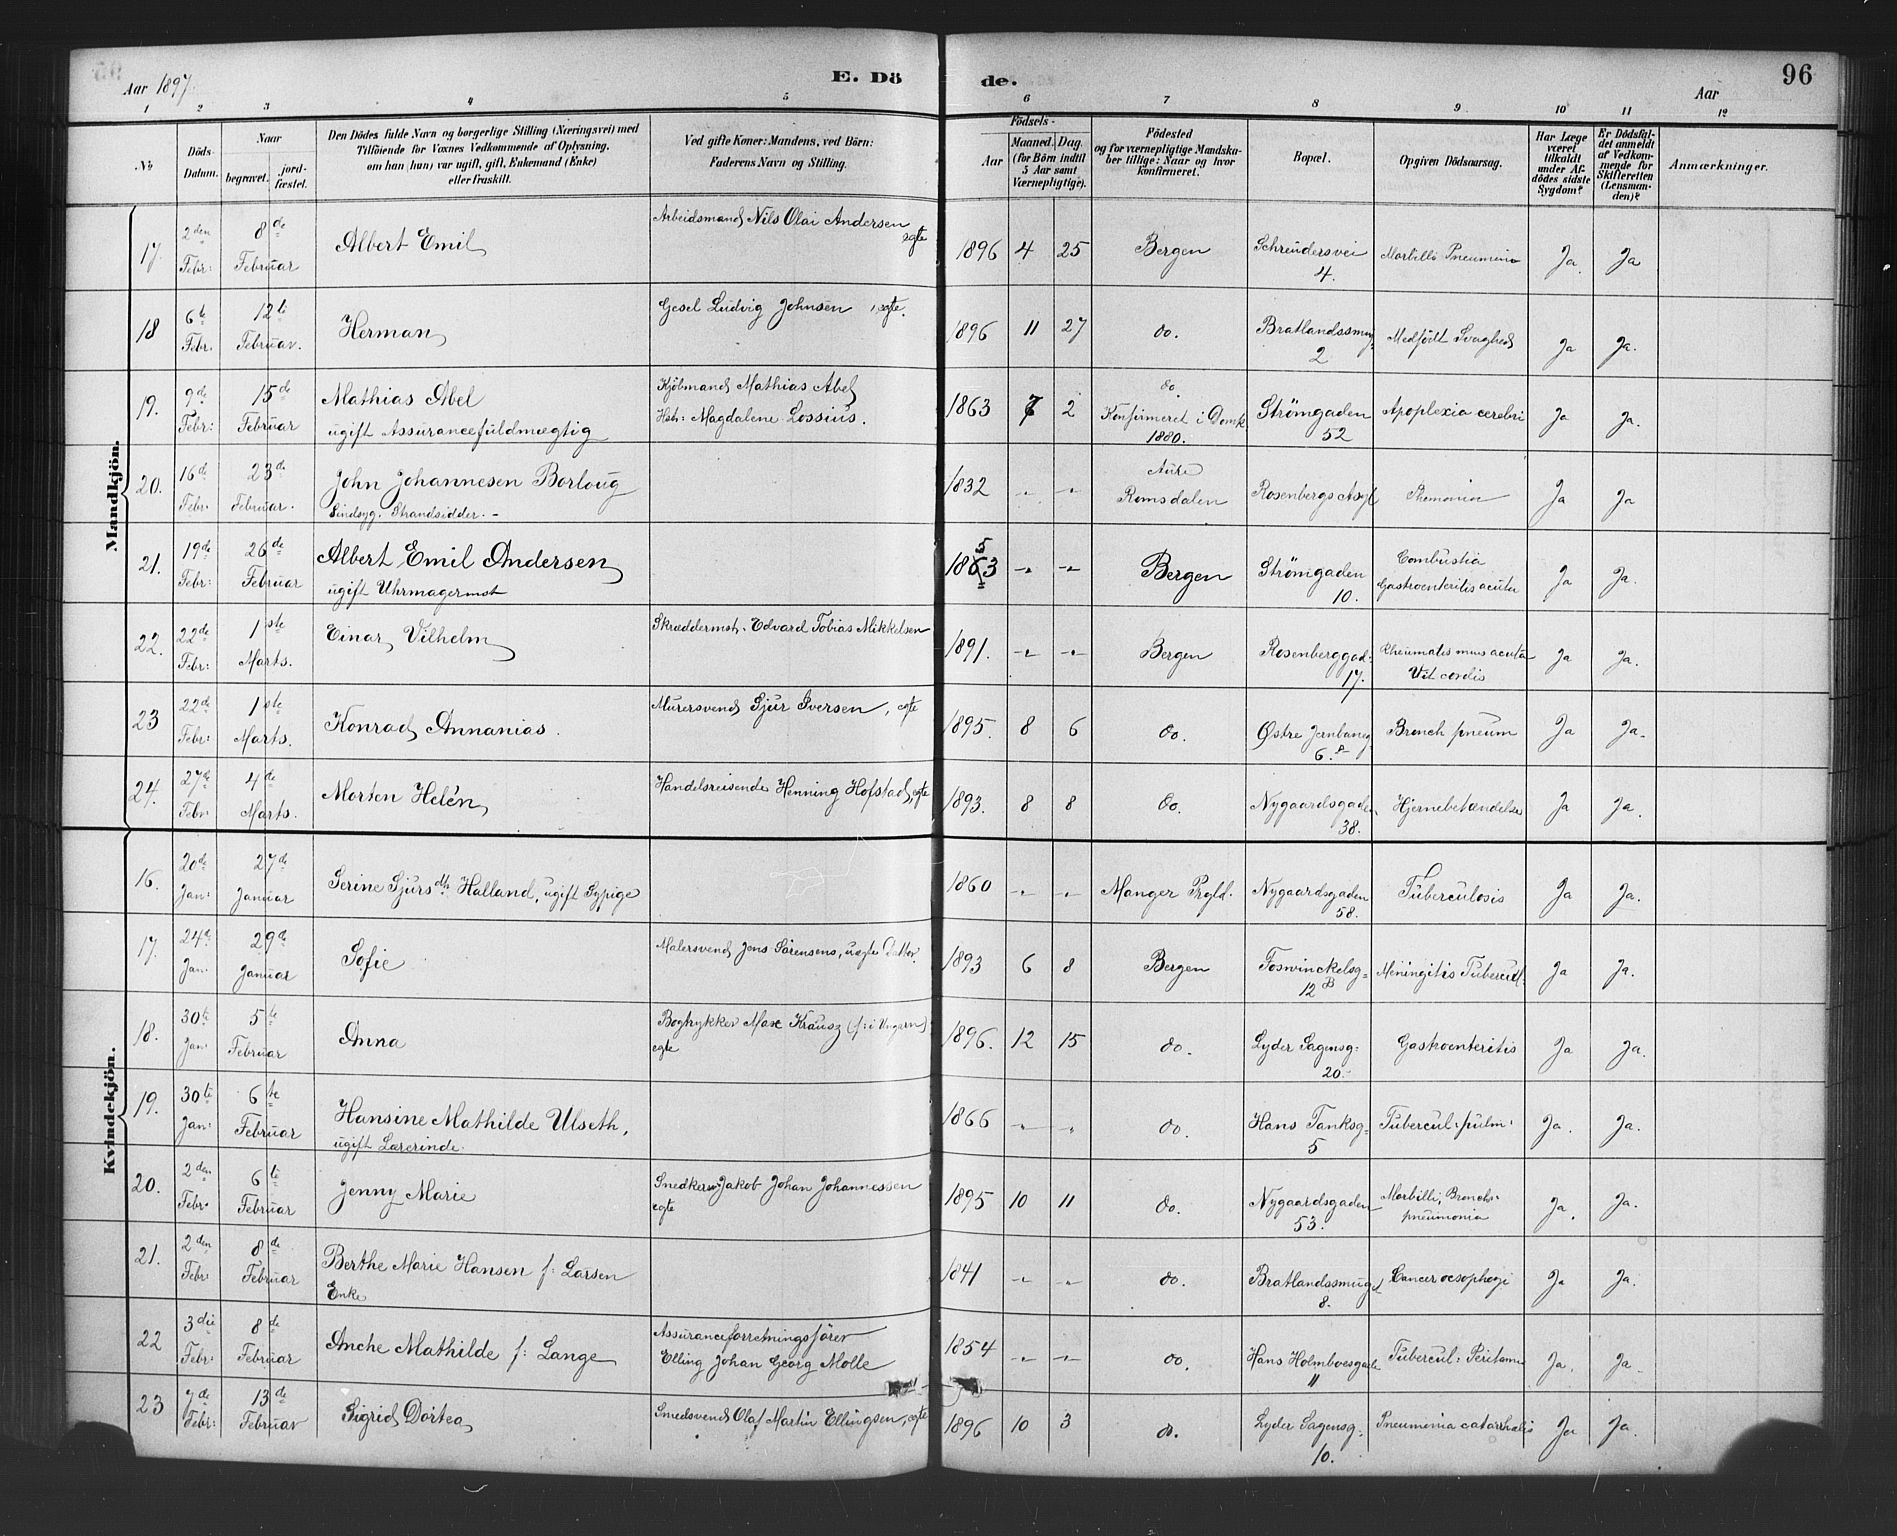 Aar 1897.
E. Dö
de.
Aar
96
1 2 3 4 5 6 7 8 9 10 11 12
No
Döds-Datum.
Naar
begravet.
jord-fæstet.
Den Dödes fulde Navn og borgerlige Stilling (Næringsvei) med
Tilföiende for Voxnes Vedkommende af Oplysning.
om han (hun) var ugift, gift, Enkemand (Enke)
eller fraskilt.
Ved gifte Koner: Mandens, ved Börn:
Faderens Navn og Stilling.
Födsels-
Aar
Maaned.
Dag.
(for Börn indtil
5 Aar samt
Værnepligtige).
Födested
og for værnepligtige Mandska-
ber tillige: Naar og hvor
konfirmeret.
Bopæl.
Opgiven Dödsaarsag.
Har Læge
været
tilkaldt
under Af-
dödes sidste
Sygdom?
Er Dödsfal-
det anmeldt
af Vedkom-
mende for
Skifteretten
(Lensman-
den)?
Anmærkninger.
Mandkjön.
17. 2den Febr: 8de Februar Albert Emil Arbeidsmand Nils Olai Andersen ægte 1896 4 25 Bergen Schreudersvei 4. Morbilli Pneumoni Ja. Ja
18 6te Febr: 12te Februar. Herman Gesel Ludvig Johnsen, ægte. 1896 11 27 do. Bratlandssmug 2 Medfödt Svaghed Ja Ja.
19. 9de Febr: 15de Februar Mathias Abel
ugift Assurancefuldmægtig Kjöbmand Mathias Abel
Hstr: Magdalene Lossius. 1863 7 2 do.
Konfirmeret i Domk
1880. Strömgaden 52 Apoplexia cerebri Ja Ja.
20. 16de Febr. 23de Februar. John Johannesen Borloug
Sindsyg. Strandsidder. - 1832 Aure
Romsdalen Rosenbergs Asyl Ja Ja
21. 19de Febr: 26de Februar Albert Emil Andersen
ugift Uhrmagermst 1853 Bergen Strömgaden 10. Combustia
Gastroenteritis acuta Ja Ja.
22. 22de Febr: 1ste Marts. Einar Vilhelm Skræddermst. Edvard Tobias Mikkelsen 1891. Bergen Rosenberggad: 17. Rheumatismus acuta
Vit cordis Ja Ja.
23 22de Febr: 1ste Marts. Konrad Annanias. Murersvend Sjur Iversen, ægte 1895. 8 6 do. Østre Jernbaneg 6. Bronch pneum Ja Ja.
24. 27de Febr 4de Marts. Morten Helén Handelsreisende Henning Hofstad, ægte 1893. 8 8 do. Nygaardsgaden 38. Hjernebetændelse Ja Ja.
Kvindekjön.
16. 20de Jan: 27de Januar Serine Sjursdtr Halland, ugift Sypige 1860 Manger Prgld. Nygaardsgaden 58. Tuberculosis Ja Ja.
17. 24de Jan. 29de Januar Sofie Malersvend Jens Sörensens, uægte Datter. 1893 6 8 Bergen Foswinckelsg= 12 B Meningitis Tubercul. Ja Ja.
18. 30te Jan. 5te Februar Anna Bogtrykker Max Krausz (f: i Ungarn)
ægte 1896. 12 15 do. Lyder Sagensg: 20. Gastroenteritis Ja Ja.
19. 30te Jan: 6te Februar Hansine Mathilde Ulseth,
ugift Lærerinde. 1866 do. Hans Tanksg= 5 Tubercul: pulm. Ja. Ja.
20. 2den Febr. 6te Februar Jenny Marie Snedkersv Jakob Johan Johannessen
ægte 1895 10 11 do. Nygaardsgaden 53. Morbilli, Broncho-
pneumonia Ja. Ja.
21. 2den Febr: 8de Februar Berthe Marie Hansen f: Larsen
Enke 1841 do. Bratlandssmuget 8. Cancer oesophagi Ja Ja.
22 3die Febr: 8de Februar Anche Mathilde f: Lange Assuranceforretningsförer
Elling Johan Georg Molle 1854 do. Hans Holmboesgade 11 Tubercul: Peritoni Ja. Ja.
23 7de Febr: 13de Februar Sigrid Dortea Smedsvend Olaf Martin Ellingsen, ægte 1896 10 3 do. Lyder Sagensg: 10. Pneumonia catarrhalis Ja Ja.